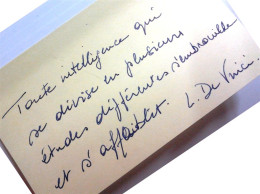 Toute intelligence qui
se divise en plusieurs
études différentes s'embrouille
et s'affaiblit. L. De Vinci.